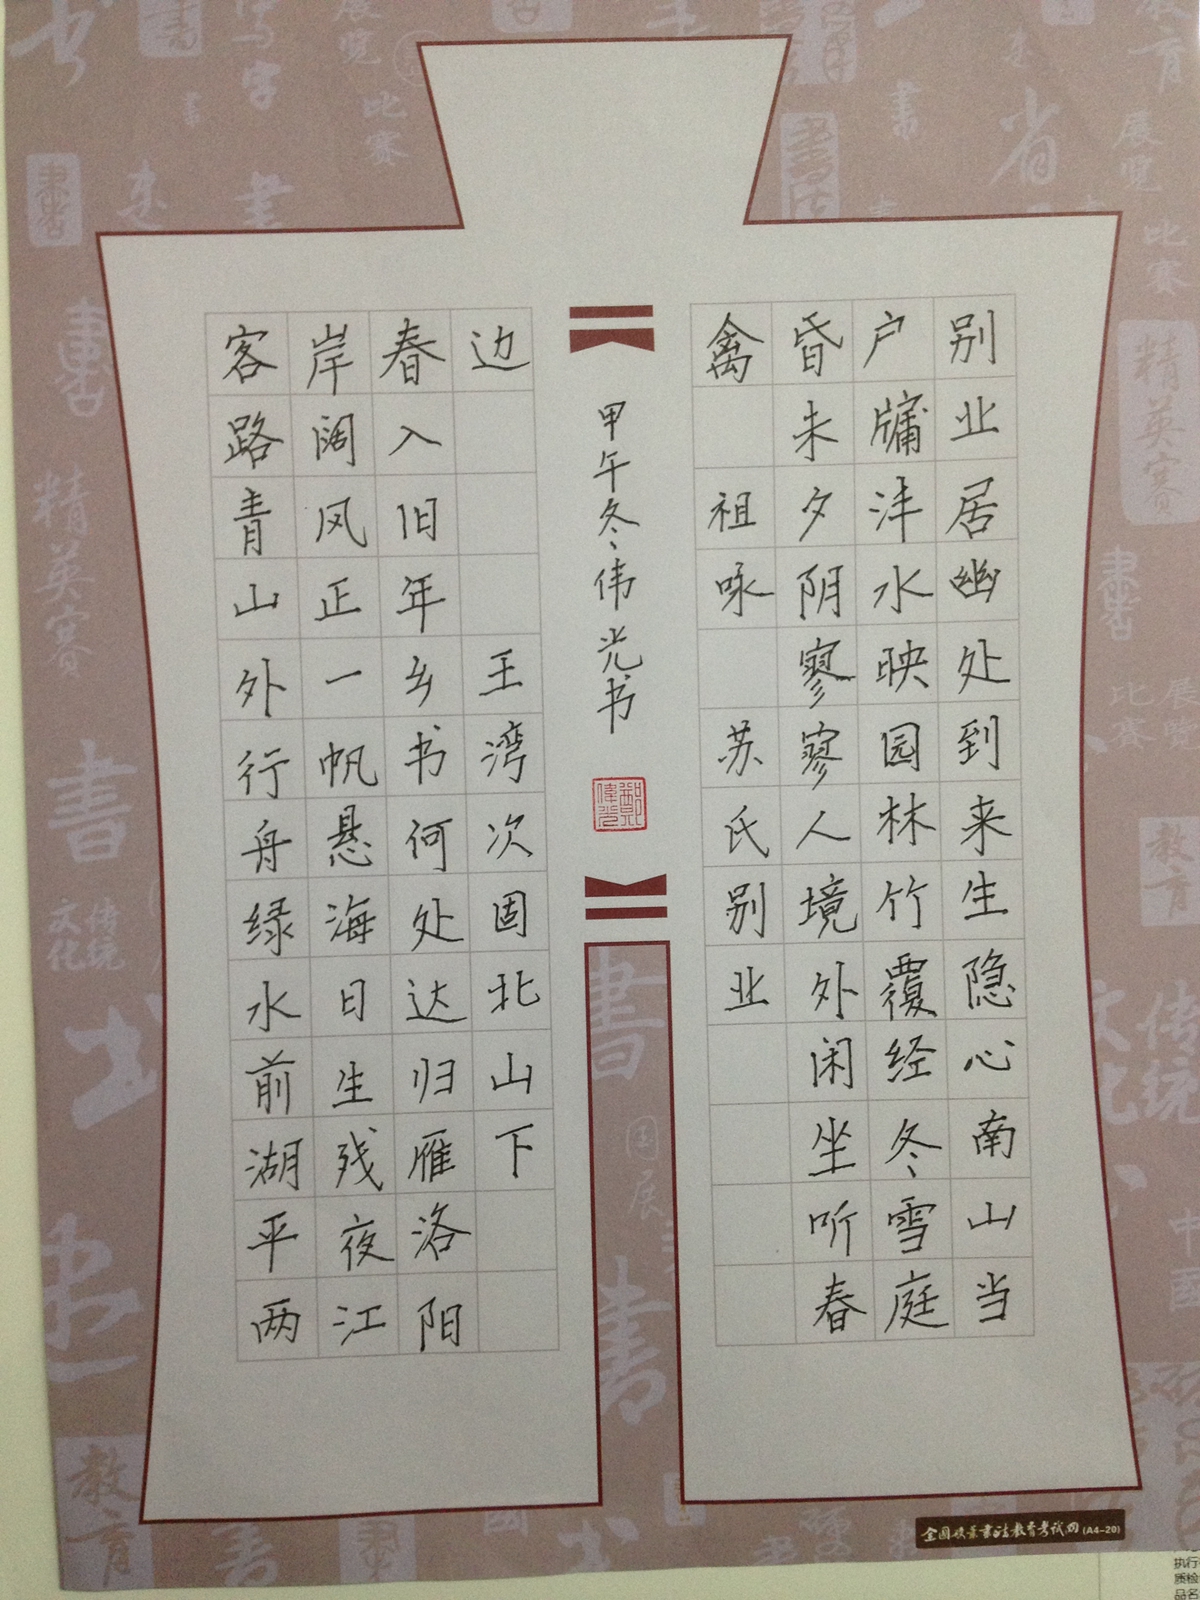 别业居幽处到来生隐心南山当
户牖沣水映园林竹覆经冬雪庭
昏未夕阴寥寥人境外闲坐听春
禽 祖咏 苏氏别业
甲午冬伟光书
客路青山外行舟绿水前湖平两
岸阔风正一帆悬海日生残夜江
春入旧年乡书何处达归雁洛阳
边 王湾次固北山下
(A4-20)
执行
质检
品名